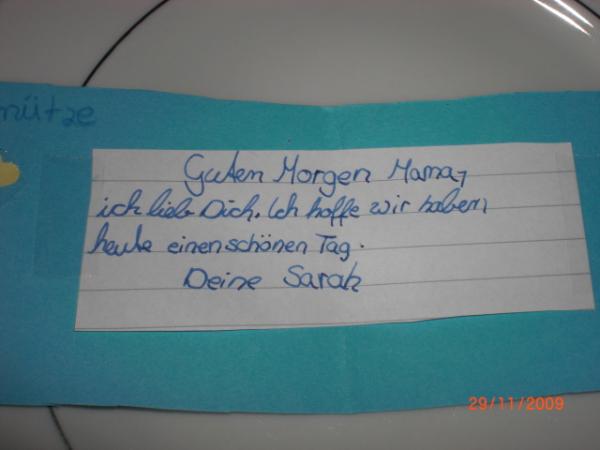 mütze
Guten Morgen Mama,
ich liebe Dich. Ich hoffe wir haben
heute einen schönen Tag.
Deine Sarah
29/11/2009